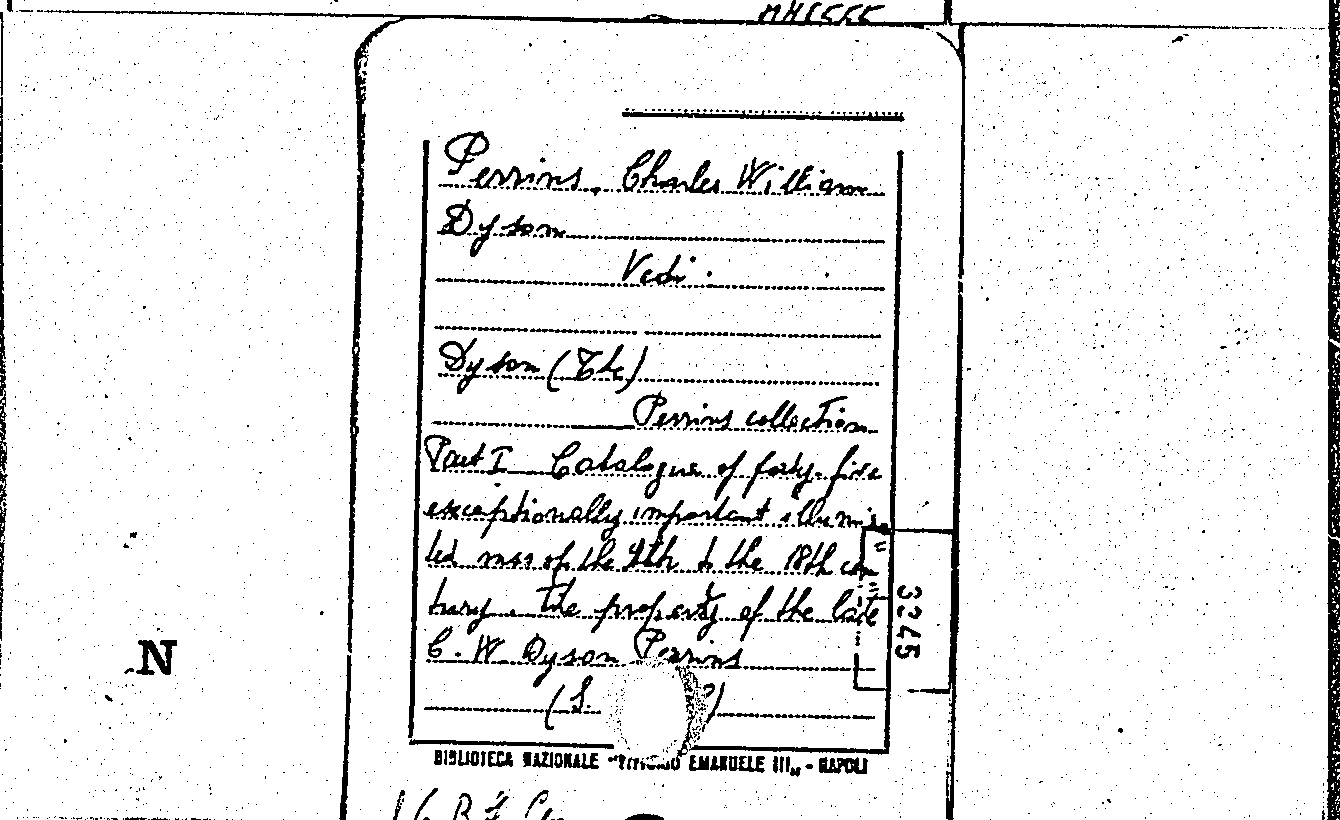 Perrins, Charles William
Dyson
Vedi:
Dyson (The)
Perrins collection
Part I Catalogue of forty-five
exceptionally important illumi=
ted mss of the 9th to the 18th cen=
tury. The property of the late
C. W. Dyson Perrins
(S.
3245
N
BIBLIOTECA NAZIONALE "VITTORIO EMANUELE III" - NAPOLI